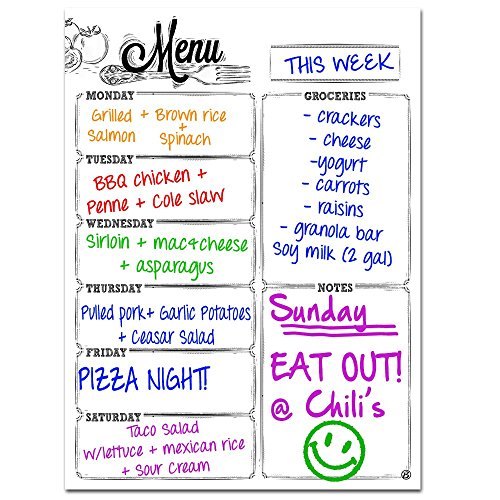 Menu
THIS WEEK
MONDAY
Grilled + Brown rice
Salmon + Spinach
TUESDAY
BBQ chicken +
Penne + Cole slaw
WEDNESDAY
Sirloin + mac&cheese
+ asparagus
THURSDAY
Pulled pork+ Garlic Potatoes
+ Ceasar Salad
FRIDAY
PIZZA NIGHT!
SATURDAY
Taco Salad
w/lettuce + mexican rice
+ Sour Cream
GROCERIES
- crackers
- cheese
-yogurt
- carrots
- raisins
- granola bar
Soy milk (2 gal)
NOTES
Sunday
EAT OUT!
@ Chili's